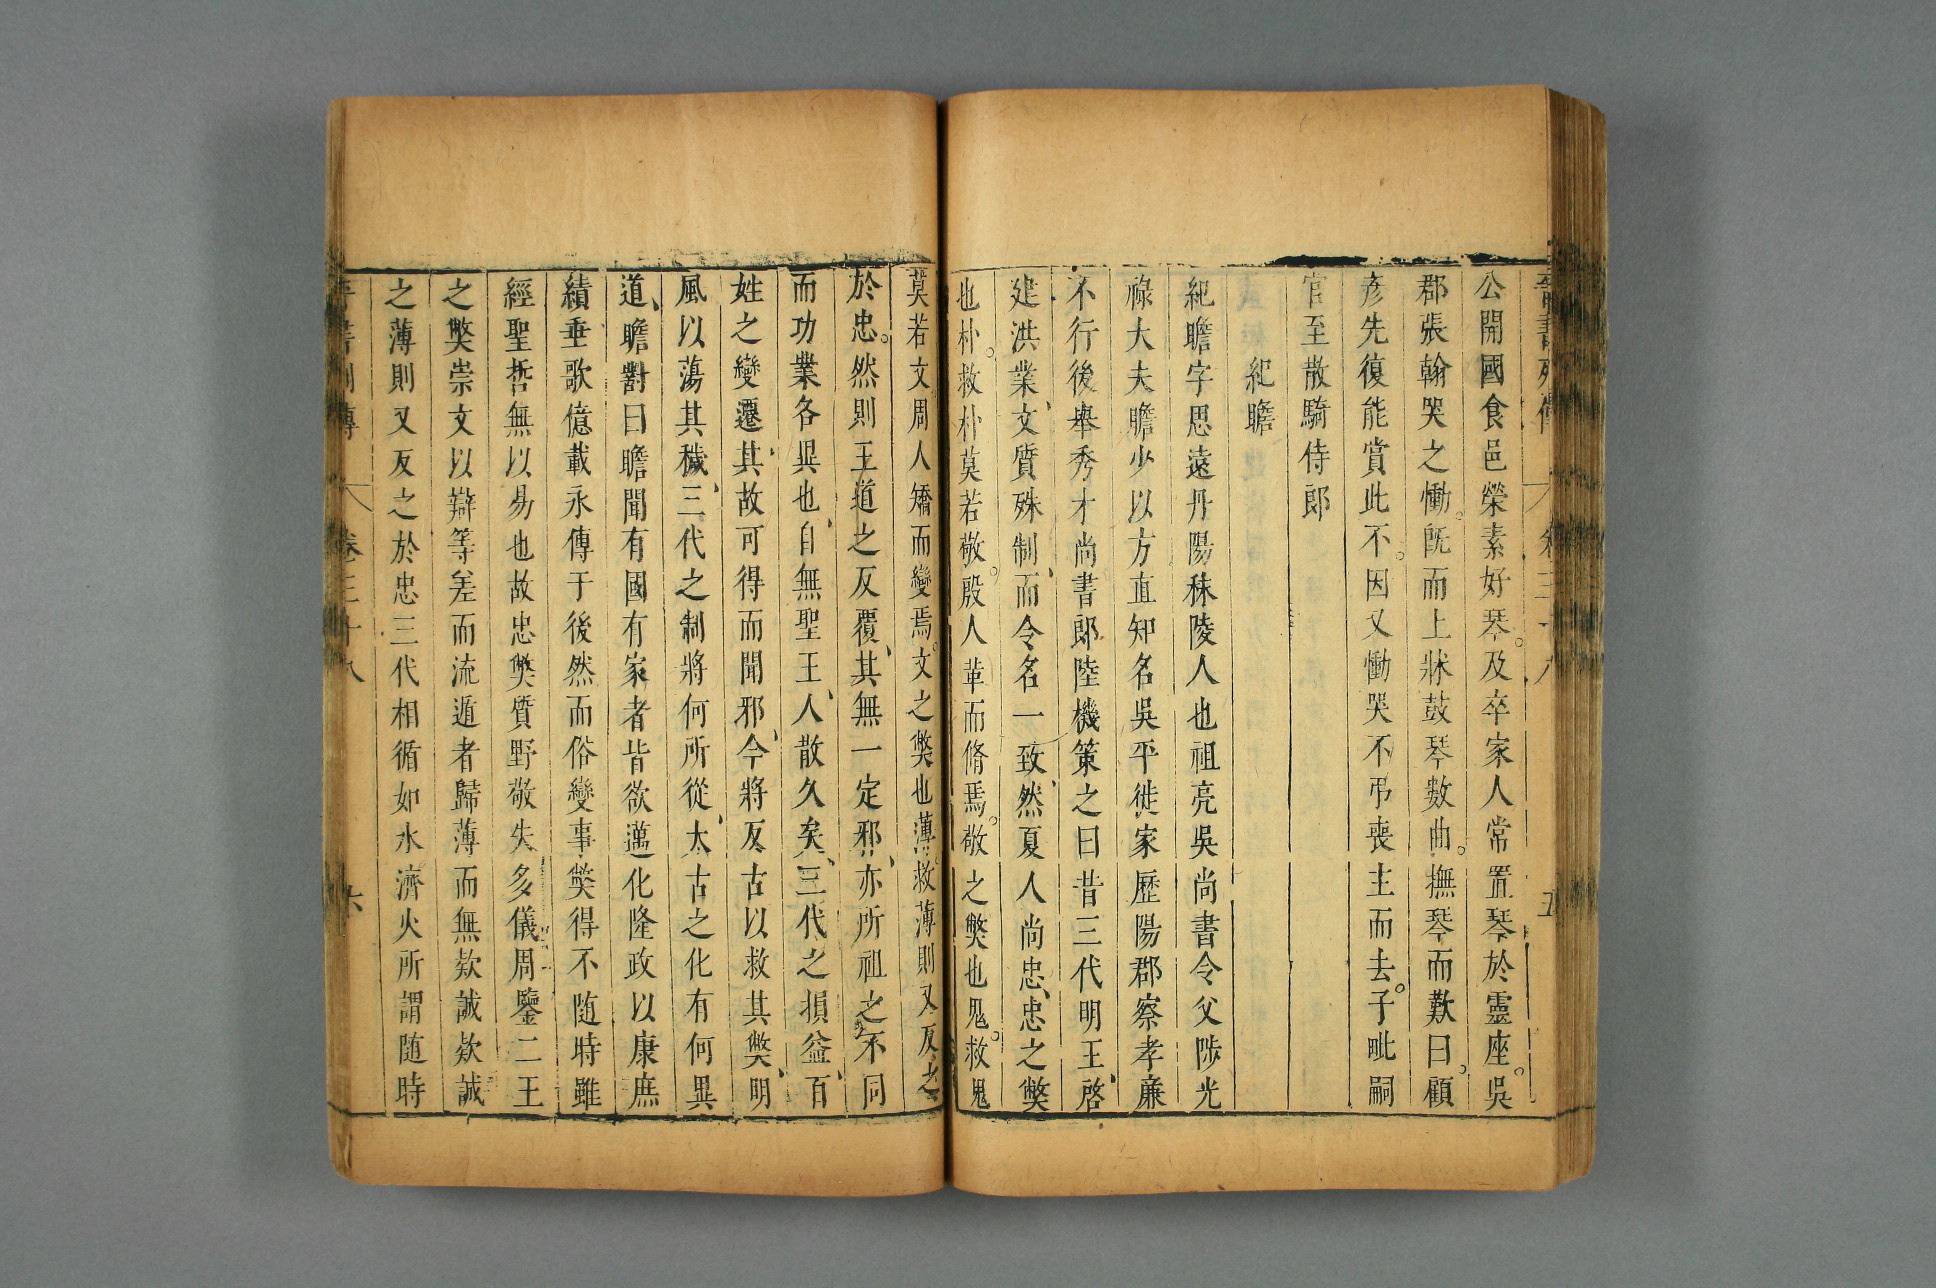 晉書列傳 卷三十八 五
公開國食邑榮素好琴及卒家人常置琴於靈座吳
郡張翰哭之慟既而上牀鼓琴數曲撫琴而歎曰顧
彥先復能賞此不因又慟哭不弔喪主而去子毗嗣
官至散騎侍郎
紀瞻
紀瞻字思遠丹陽秣陵人也祖亮吳尚書令父陟光
祿大夫瞻少以方直知名吳平徙家歷陽郡察孝廉
不行後舉秀才尚書郎陸機策之曰昔三代明王啓
建洪業文質殊制而令名一致然夏人尚忠忠之獘
也朴救朴莫若敬殷人革而脩焉敬之獘也鬼救鬼
莫若文周人矯而變焉文之獘也薄救薄則又反之
於忠然則王道之反覆其無一定邪亦所祖之不同
而功業各異也自無聖王人散久矣三代之損益百
姓之變遷其故可得而聞邪今將反古以救其獘明
風以蕩其穢三代之制將何所從太古之化有何異
道瞻對曰瞻聞有國有家者皆欲邁化隆政以康庶
績垂歌億載永傳于後然而俗變事獘得不隨時雖
經聖哲無以易也故忠獘質野敬失多儀周鑒二王
之獘崇文以辯等差而流遁者歸薄而無欵誠欵誠
之薄則又反之於忠三代相循如水濟火所謂隨時
晉書列傳 卷三十八 六